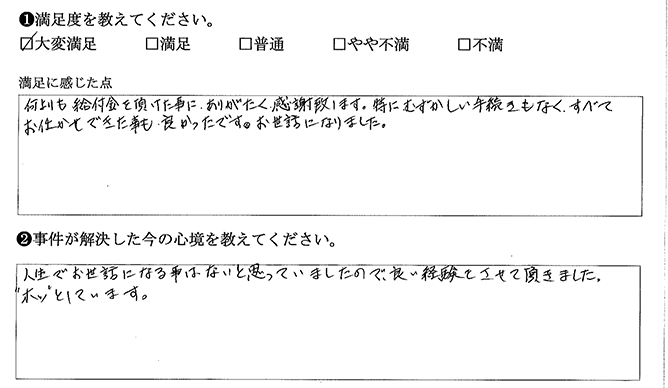 ❶満足度を教えてください。
☑大変満足 □満足 □普通 □やや不満 □不満
満足に感じた点
何よりも給付金を頂けた事に、ありがたく感謝致します。特にむずかしい手続きもなく、すべて
お任かせできた事も、良かったです。お世話になりました。
❷事件が解決した今の心境を教えてください。
人生でお世話になる事はないと思っていましたので、良い経験をさせて頂きました。
"ホッ"としています。